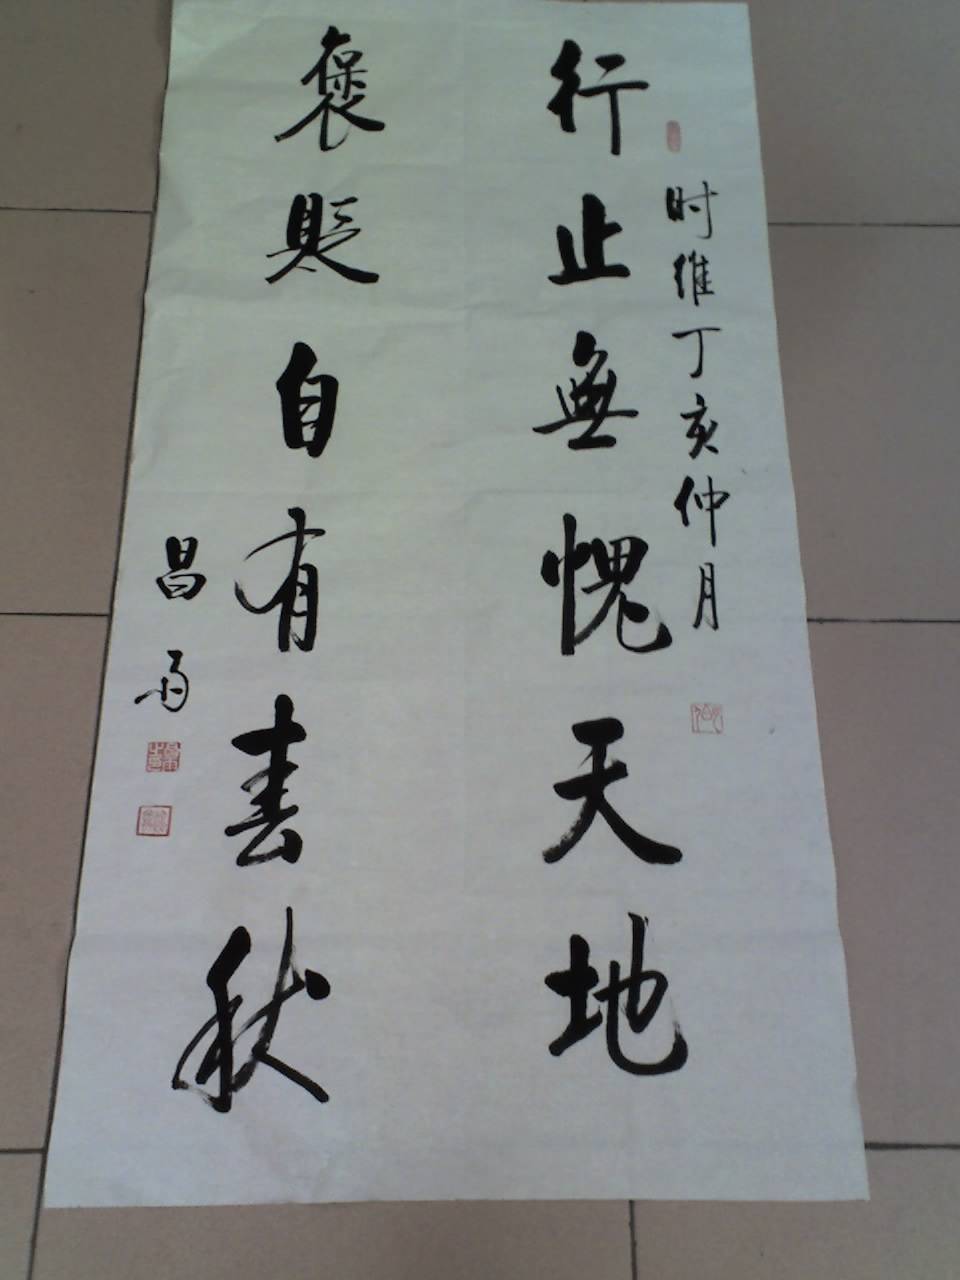 时维丁亥仲月
行止無愧天地
褒贬自有春秋
昌